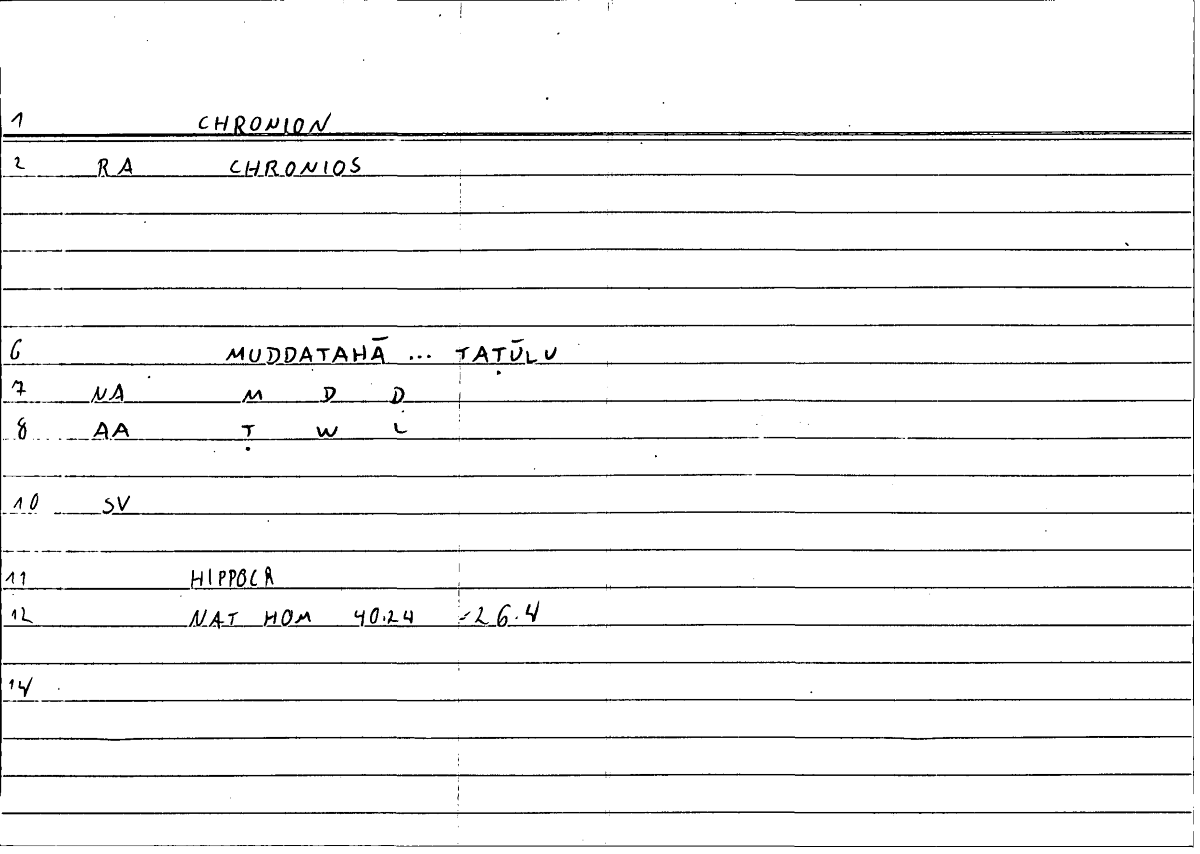 1 CHRONION
2 RA CHRONIOS
6 MUDDATAHĀ ... TAṬŪLU
7 NA M D D
8 AA Ṭ W L
10 SV
11 HIPPOCR
12 NAT HOM 40.24 -26.4
14